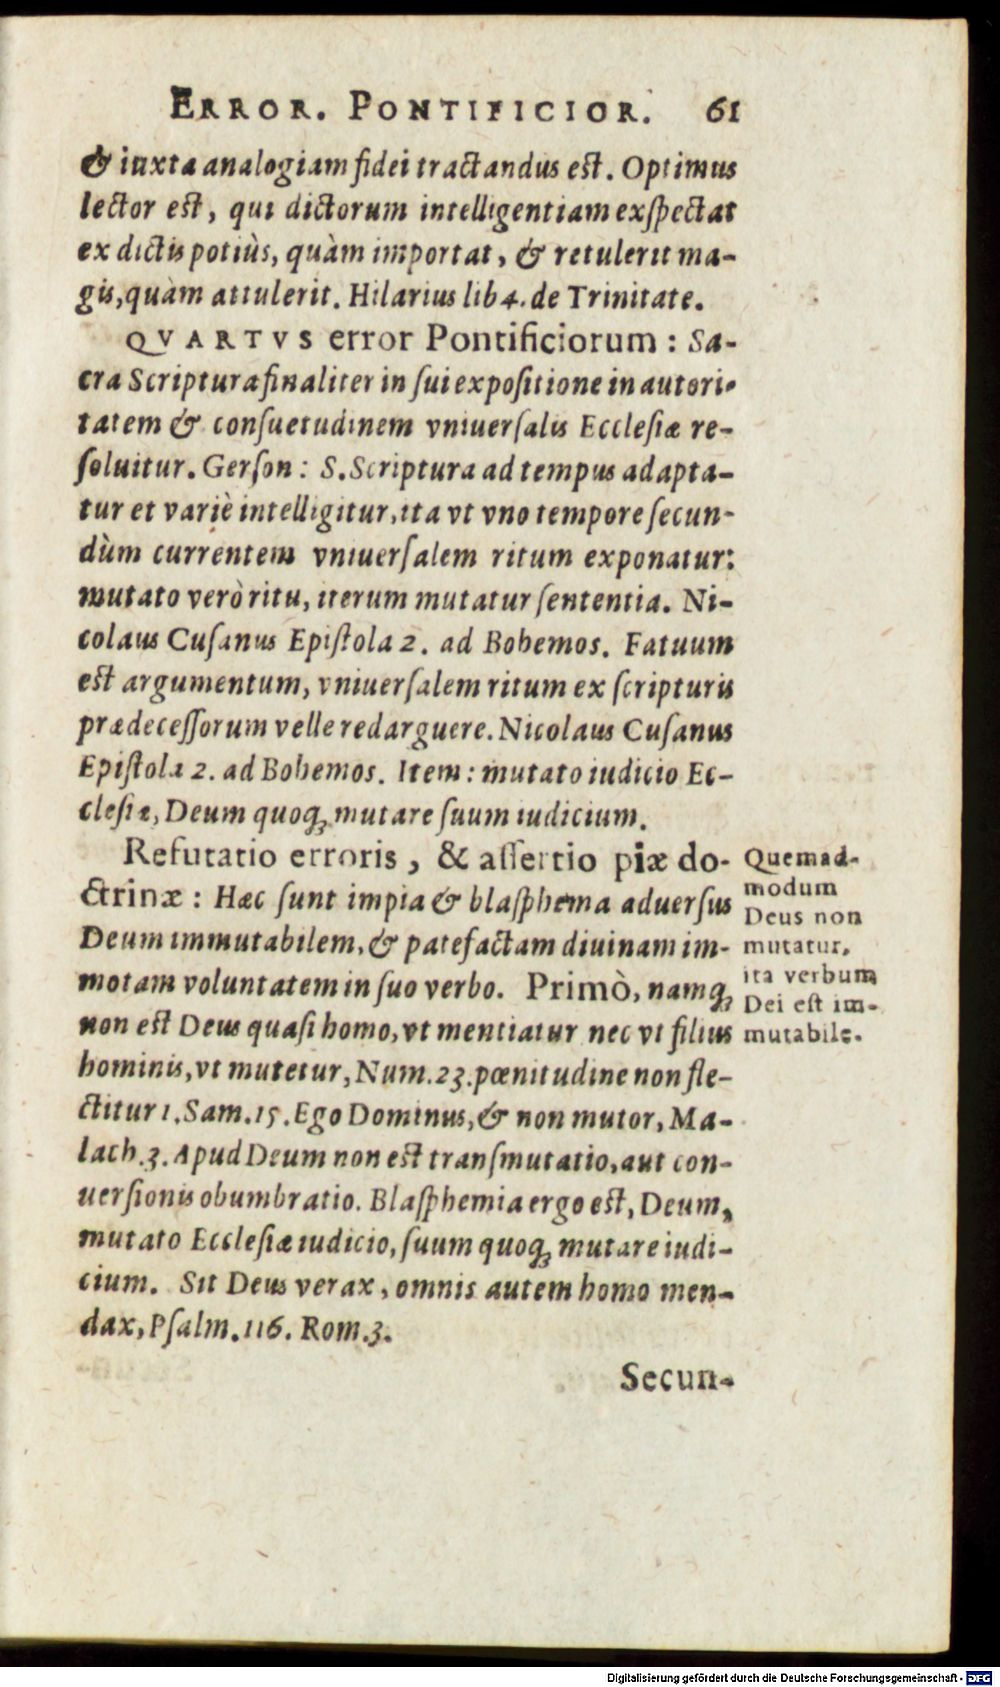 ERROR. PONTIFICIOR. 61
& iuxta analogiam fidei tractandus est. Optimus
lector est, qui dictorum intelligentiam exſpectat
ex dictis potiùs, quàm importat, & retulerit ma-
gis, quàm attulerit. Hilarius lib 4. de Trinitate.
QVARTVS error Pontificiorum: Sa-
cra Scriptura finaliter in ſui expoſitione in autori-
tatem & conſuetudinem vniuerſalis Eccleſiæ re-
ſoluitur. Gerſon: S. Scriptura ad tempus adapta-
tur et variè intelligitur, ita vt vno tempore ſecun-
dùm currentem vniuerſalem ritum exponatur:
mutato verò ritu, iterum mutatur ſententia. Ni-
colaus Cuſanus Epiſtola 2. ad Bohemos. Fatuum
est argumentum, vniuerſalem ritum ex ſcripturis
prædeceſſorum velle redarguere. Nicolaus Cuſanus
Epiſtola 2. ad Bohemos. Item: mutato iudicio Ec-
cleſiæ, Deum quoq; mutare ſuum iudicium.
Refutatio erroris, & aſſertio piæ do-
ctrinæ: Hæc ſunt impia & blaſphema aduerſus
Deum immutabilem, & patefactam diuinam im-
motam voluntatem in ſuo verbo. Primò, namq;
non est Deus quaſi homo, vt mentiatur nec vt filius
hominis, vt mutetur, Num. 23. pœnitudine non fle-
ctitur 1. Sam. 15. Ego Dominus, & non mutor, Ma-
lach. 3. Apud Deum non est tranſmutatio, aut con-
uerſionis obumbratio. Blaſphemia ergo est, Deum,
mutato Eccleſiæ iudicio, ſuum quoq; mutare iudi-
cium. Sit Deus verax, omnis autem homo men-
dax, Pſalm. 116. Rom. 3.
Quemad-
modum
Deus non
mutatur,
ita verbum
Dei eſt im-
mutabile.
Secun-
Digitalisierung gefördert durch die Deutsche Forschungsgemeinschaft - DFG